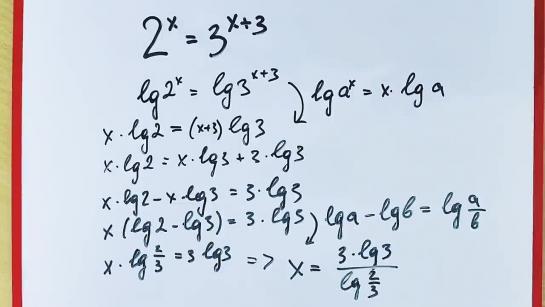 2^x = 3^{x+3}
lg2^x = lg3^{x+3} lg a^x = x · lg a
x · lg2 = (x+3) lg3
x · lg2 = x · lg3 + 3 · lg3
x · lg2 - x · lg3 = 3 · lg3
x (lg2 - lg3) = 3 · lg3 lga - lgb = lg a/b
x · lg 2/3 = 3 lg3 => x = 3·lg3 / lg 2/3